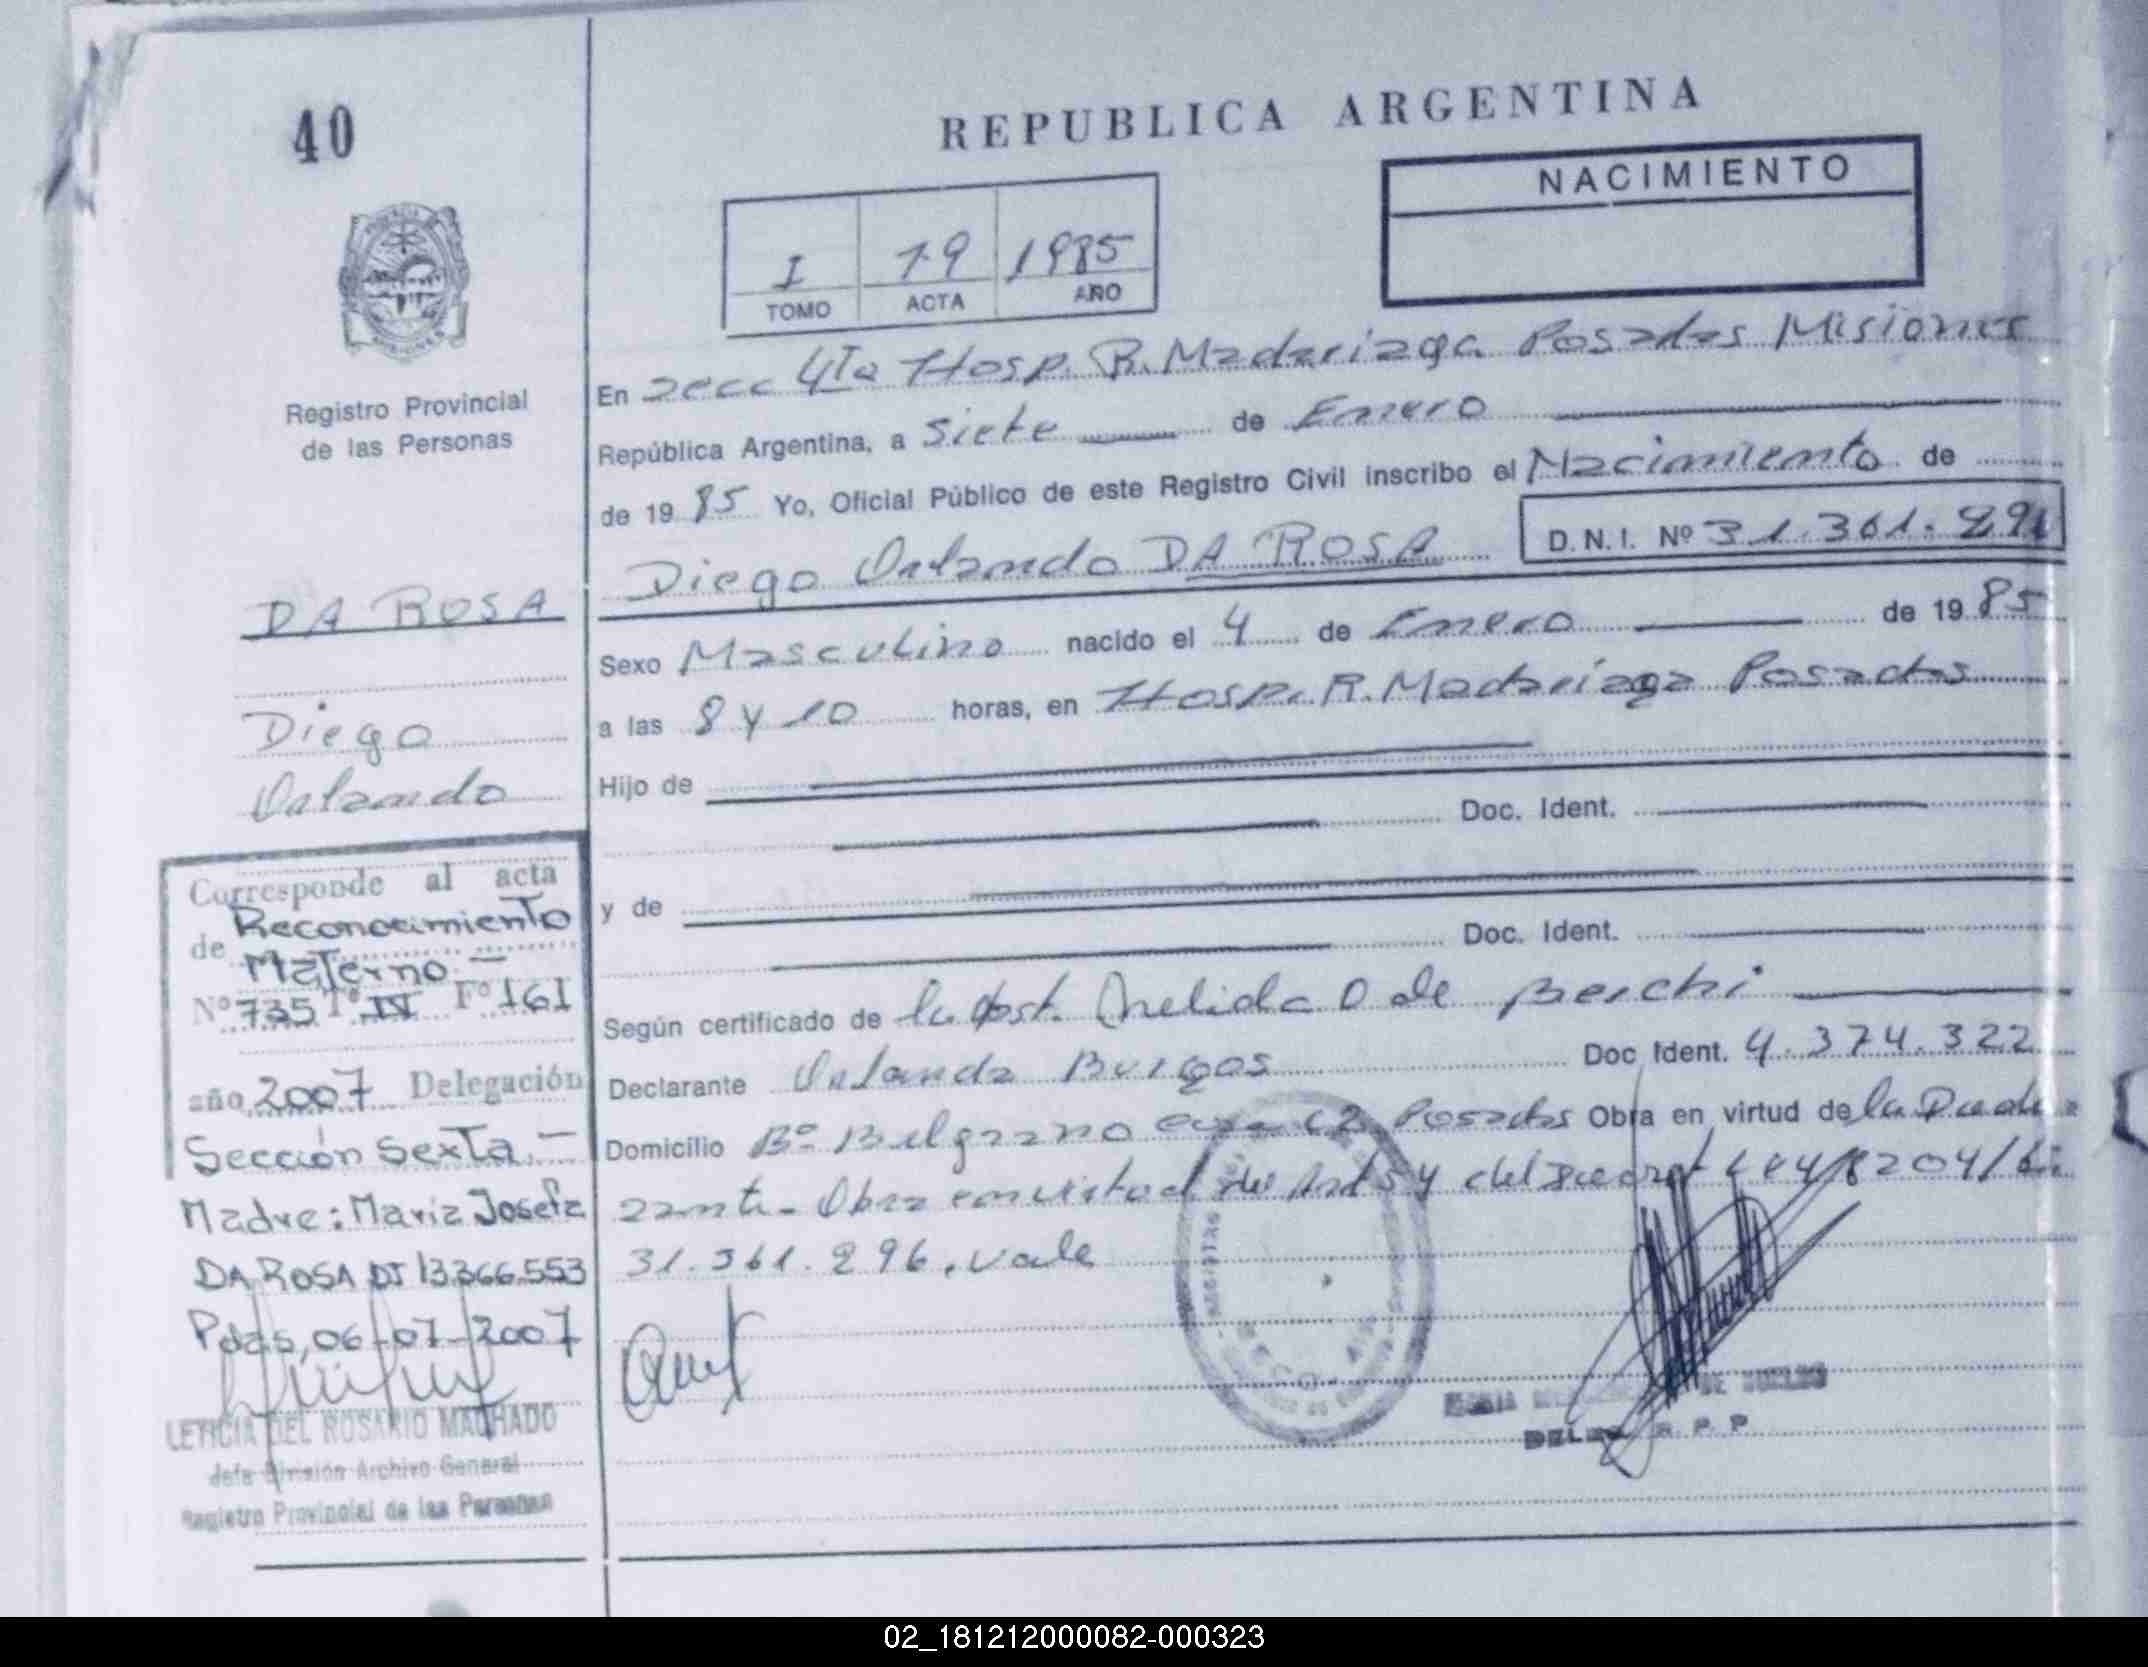 40
REPUBLICA ARGENTINA
NACIMIENTO
I 79 1985
TOMO ACTA AÑO
Registro Provincial
de las Personas
En Secc 4Ta Hosp. R. Madariaga Posadas Misiones
República Argentina, a Siete de Enero
de 19 85 Yo, Oficial Público de este Registro Civil inscribo el Nacimiento de
Diego Orlando DA ROSA D.N.I. Nº 31.361.291
DA ROSA
Diego
Orlando
Sexo Masculino nacido el 4 de Enero de 19 85
a las 8 y 10 horas, en Hosp. R. Madariaga Posadas
Hijo de
Doc. Ident.
y de
Doc. Ident.
Según certificado de la Obst. Onelida O de
Declarante Orlanda Burgos Doc Ident. 4.374.322
Domicilio Bº Belgrano Posadas Obra en virtud de la
Obra en virtud del y del 204/
31.361.296, vale
Corresponde al acta
de Reconocimiento
Materno -
Nº 735 Tº IV Fº 161
año 2007 Delegación
Sección Sexta. -
Madre: Maria Josefa
DA ROSA DI 13.366.553
Pdas, 06-07-2007
LETICIA DEL ROSARIO MACHADO
Jefe División Archivo General
Registro Provincial de las Personas
R. P. P.
02_181212000082-000323